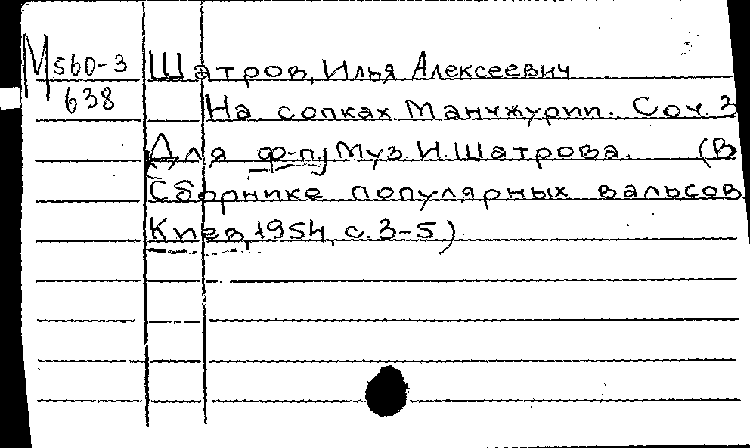 М560-3 Шатров, Илья Алексеевич
638 На сопках Манчжурии. Соч. 3
Для ф-п; Муз И. Шатрова. (В
Сборнике популярных вальсов
Киев, 1954, с. 3-5)